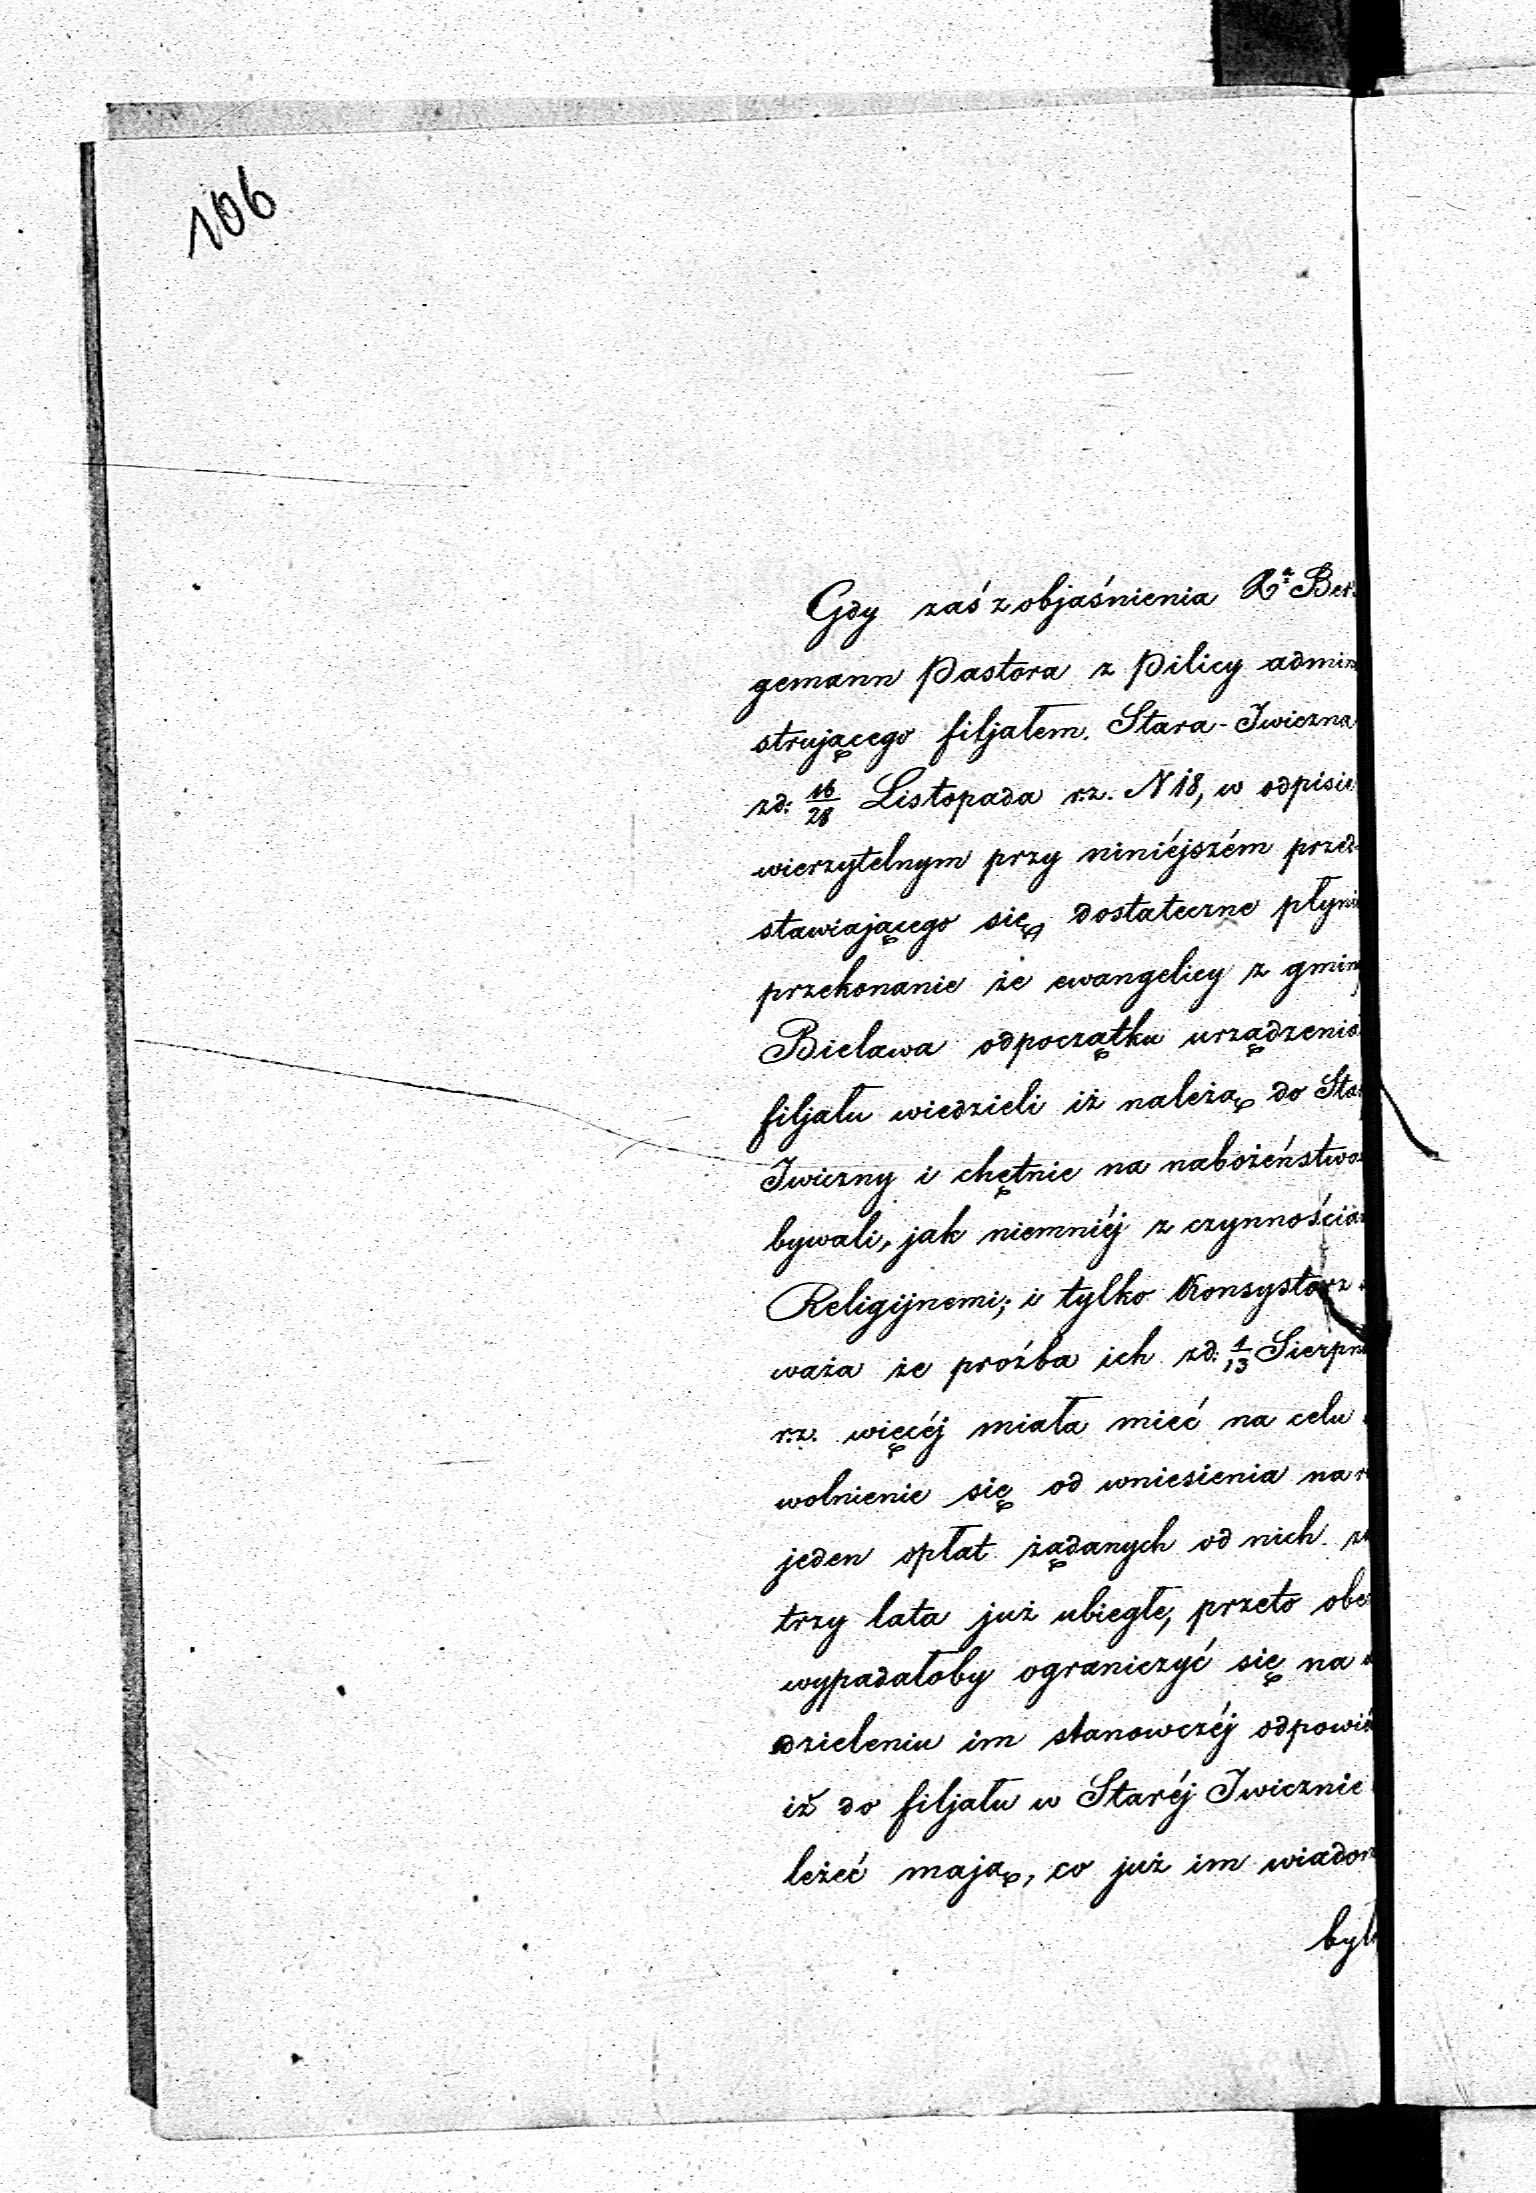 106
Gdy zaś z objaśnienia Xa Ber
gemann Pastora z Pilicy admin
strującego filjałem. Stara-Iwiczna
zd: 16/28 Listopada r.z. N 18, w odpisie
wierzytelnym przy niniéjszém przed
stawiającego się, dostateczne płyni
przekonanie że ewangelicy z gmin
Bielawa odpoczątku urządzenia
filjału wiedzieli iż należą do Sta
Iwiczny i chętnie na nabożeństwa
bywali, jak niemniéj z czynnościa
Religijnemi; i tylko Konsystorz
waża że prożba ich zd: 1/13 Sierpn
r.z. więcéj miała mieć na celu
wolnienie się od wniesienia na r
jeden opłat żądanych od nich z
trzy lata już ubiegłe, przeto obe
wypadałoby ograniczyć się na
dzieleniu im stanowczéj odpowie
iż do filjału w Staréj Iwicznie
leżeć mają, co już im wiadom
było